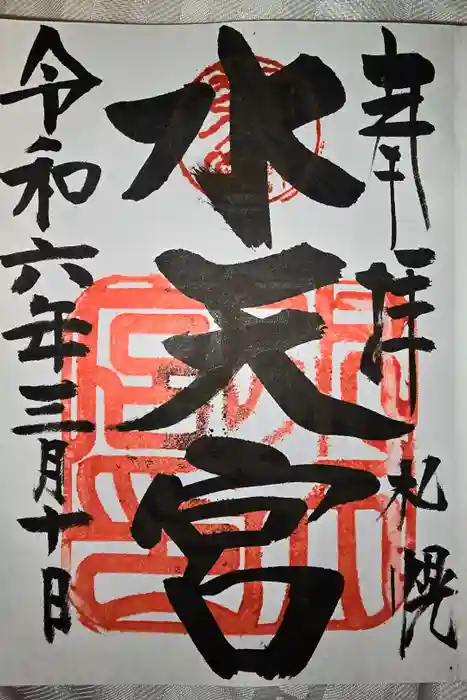 奉拝 札幌
水天宮
令和六年三月十日